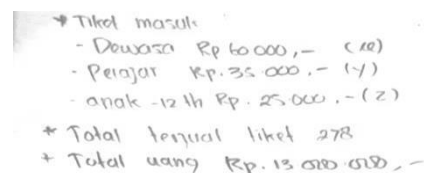 * Tiket masuk
- Dewasa Rp 60 000,- (x)
- Pelajar Rp. 35 000,- (y)
- anak -12 th Rp. 25.000,- (z)
* Total terjual tiket 278
* Total uang Rp. 13 020 020,-